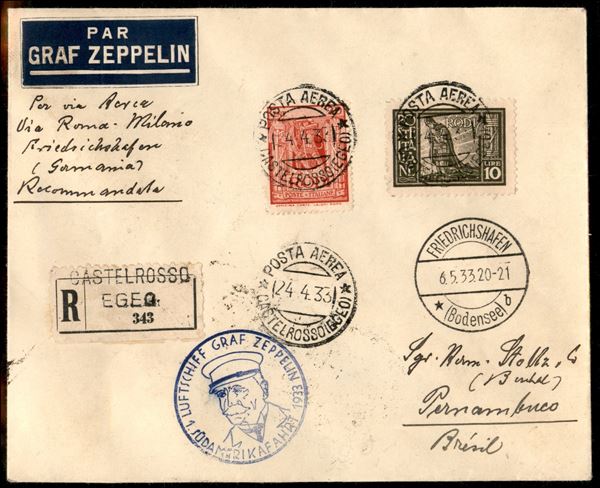 PAR
GRAF ZEPPELIN
Per via Aerea
Via Roma-Milano
Friedrichshafen
(Germania)
Recommandata
POSTA AEREA
24.4.33
CASTELROSSO (EGEO)
POSTE ITALIANE
POSTA AEREA
RODI
POSTE ITALIANE
LIRE
10
CASTELROSSO
EGEO
R
343
POSTA AEREA
24.4.33
CASTELROSSO (EGEO)
FRIEDRICHSHAFEN
6.5.33.20-21
(Bodensee) b
LUFTSCHIFF GRAF ZEPPELIN
1. SÜDAMERIKAFAHRT 1933
Sgr. Herm. Stoltz & Co
Pernambuco
Brésil